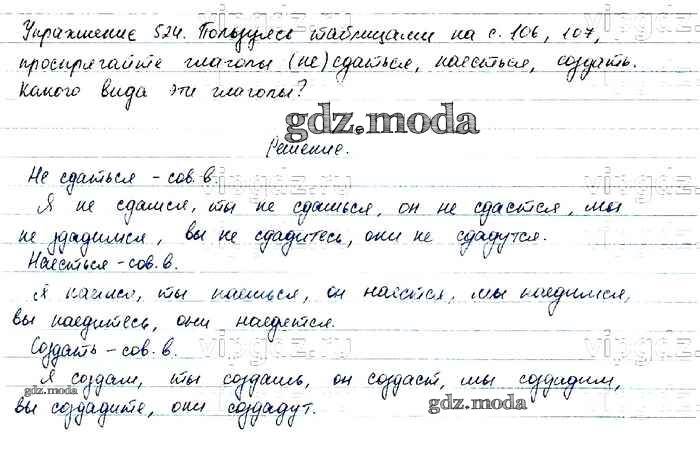 Упражнение 524. Пользуясь таблицами на с. 106, 107,
проспрягайте глаголы (не)сдаться, наесться, создать.
Какого вида эти глаголы?
gdz.moda
Решение.
Не сдаться - сов. в.
Я не сдамся, ты не сдашься, он не сдастся, мы
не здадимся, вы не сдадитесь, они не сдадутся.
Наесться - сов. в.
Я наемся, ты наешься, он наестся, мы наедимся,
вы наедитесь, они наедятся.
Создать - сов. в.
Я создам, ты создашь, он создаст, мы создадим,
gdz.moda
вы создадите, они создадут.
gdz.moda